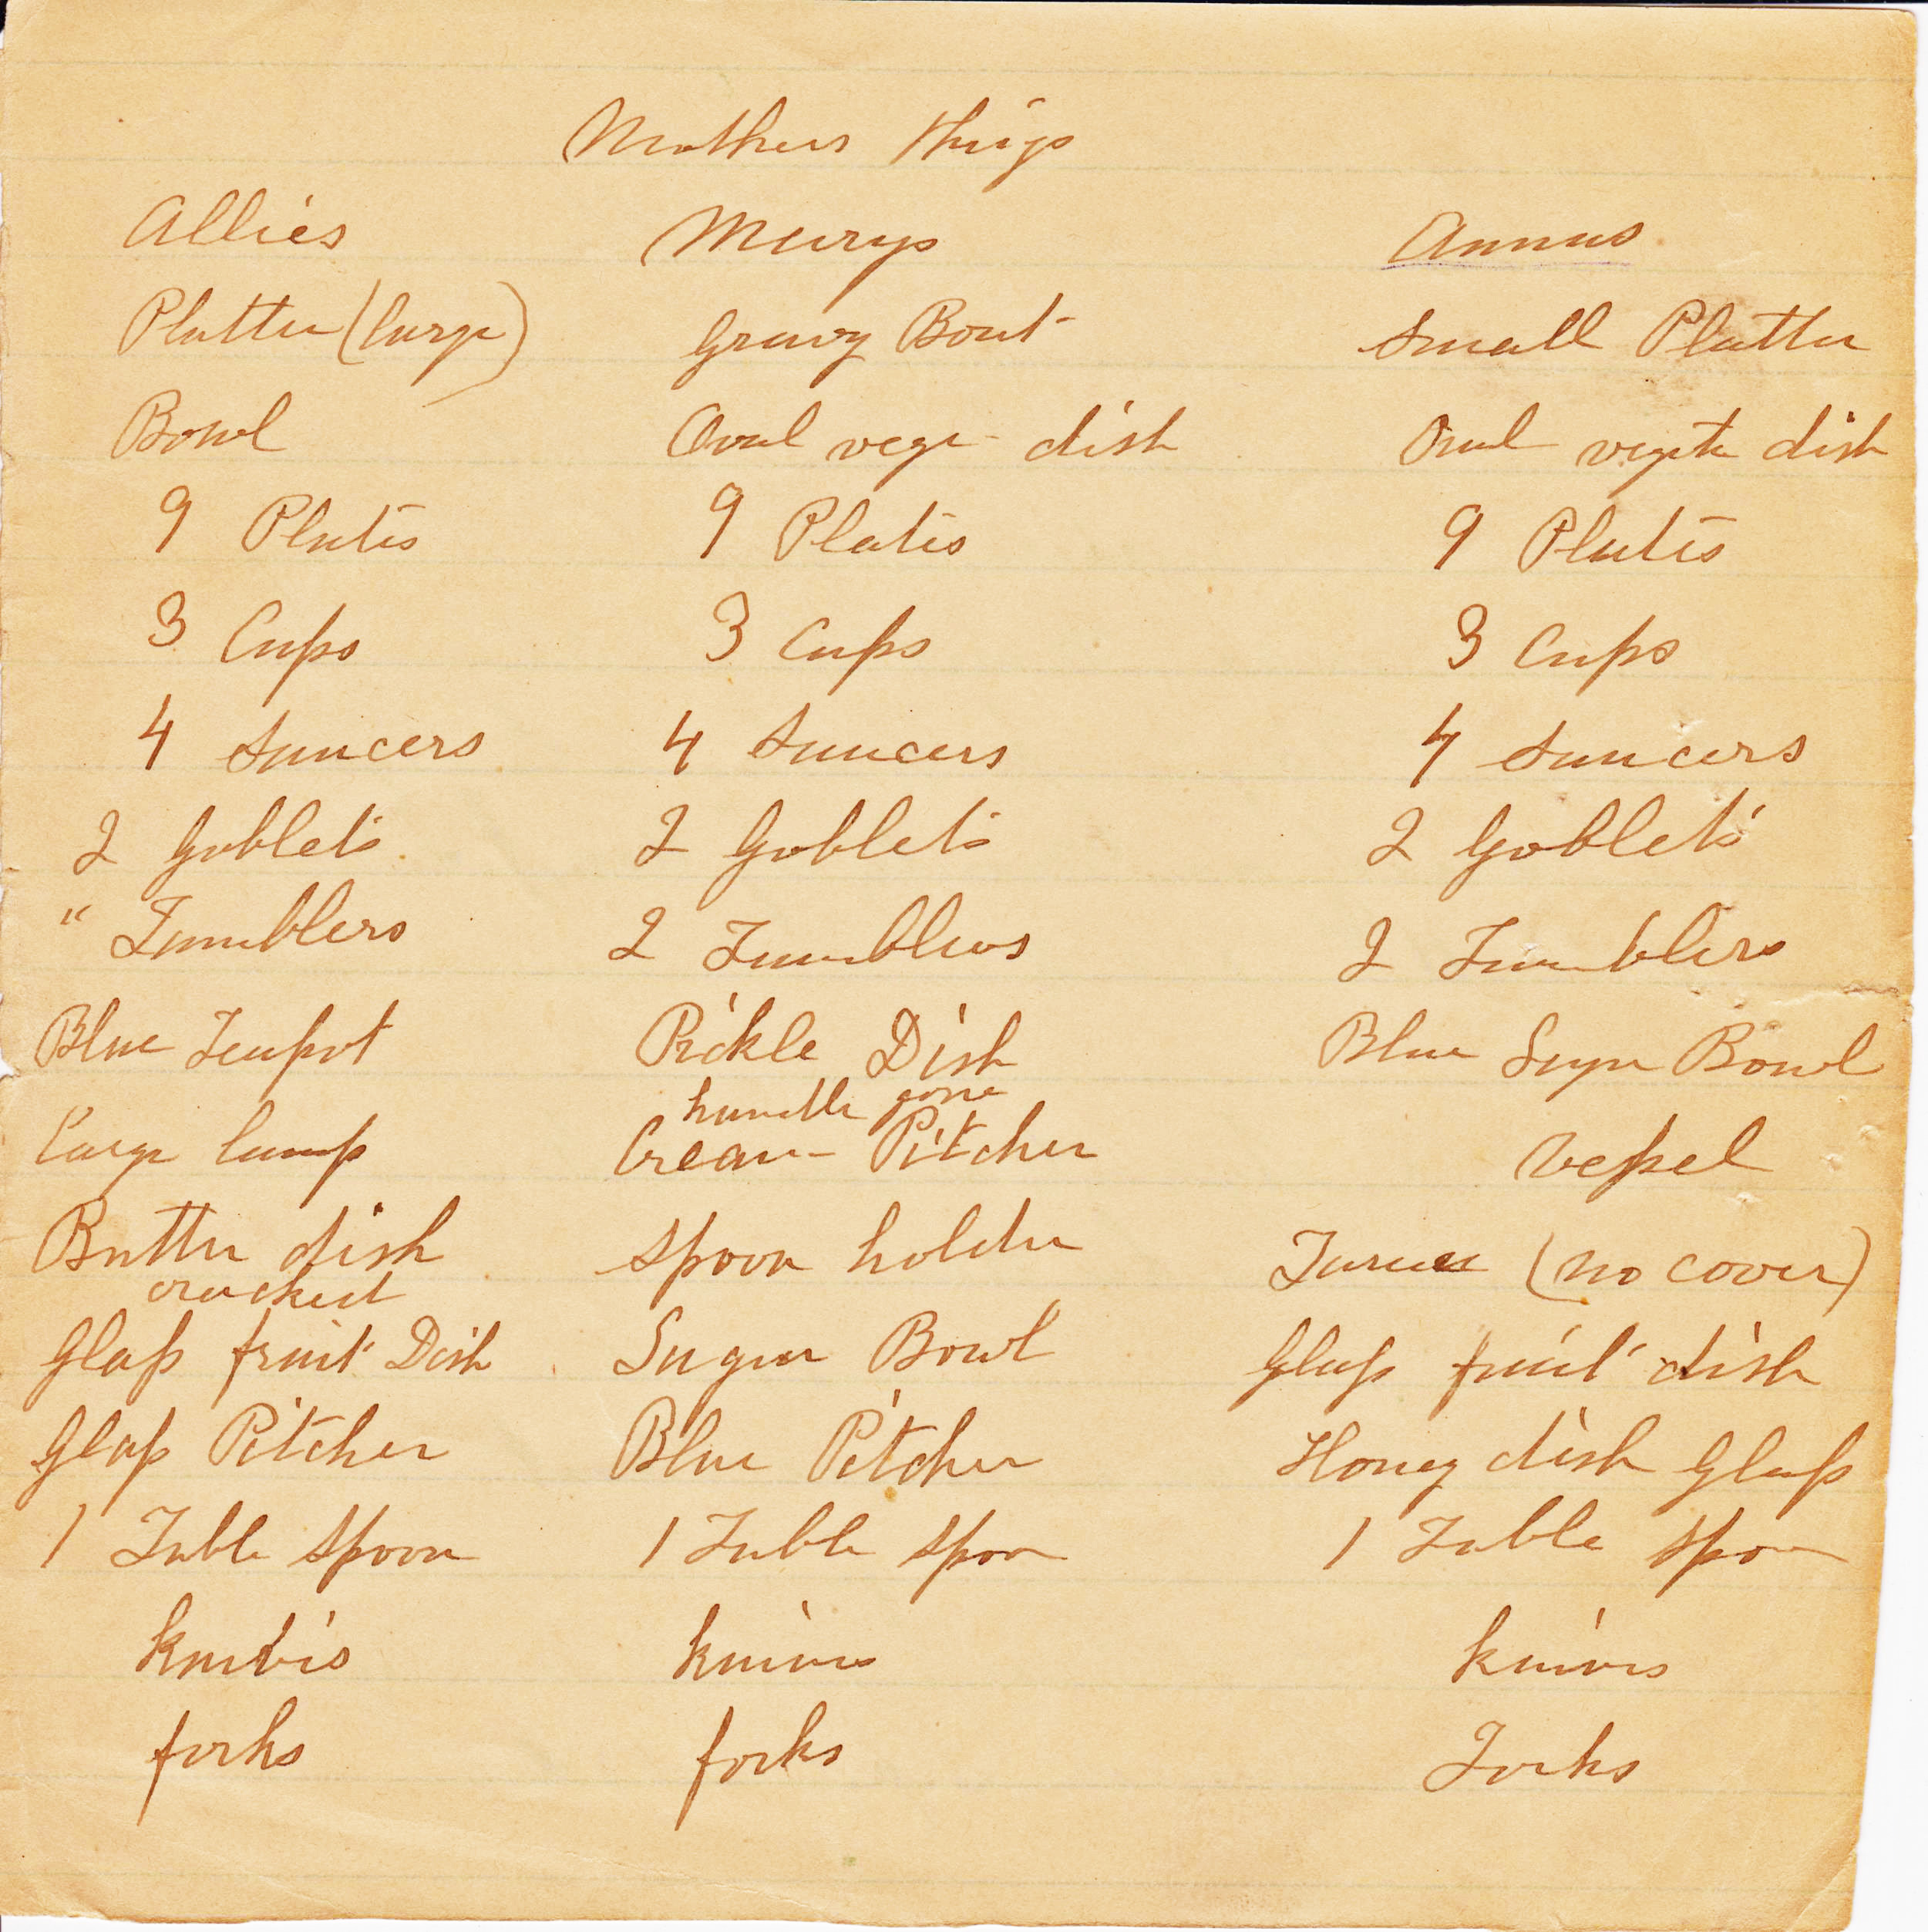 Mothers things
Allies Marys Annas
Platter (large) Gravy Boat Small Platter
Bowl Oval vege- dish Oval vegete dish
9 Plates 9 Plates 9 Plates
3 Cups 3 Cups 3 Cups
4 Saucers 4 Saucers 4 Saucers
2 Goblets 2 Goblets 2 Goblets
" Tumblers 2 Tumblers 2 Tumblers
Blue Teapot Pickle Dish Blue Sugar Bowl
handle gone
Large lamp Cream Pitcher Vessel
Butter dish spoon holder Tureen (no cover)
cracked
Glass fruit Dish Sugar Bowl Glass fruit dish
Glass Pitcher Blue Pitcher Honey dish Glass
1 Table spoon 1 Table spoon 1 Table spoon
knives knives knives
forks forks Forks